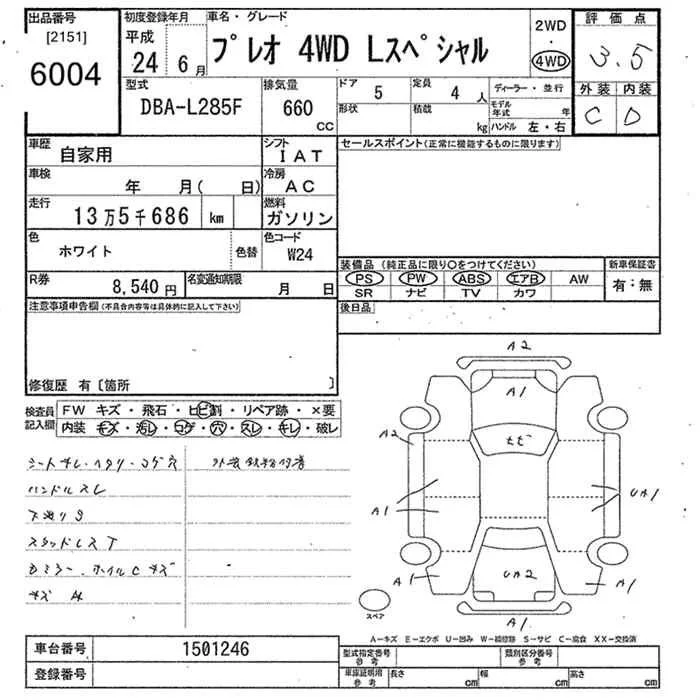 出品番号
[2151]
6004
初度登録年月
平成
24 6月
車名・グレード
プレオ 4WD Lスペシャル
2WD
・
4WD
評価点
3.5
型式
DBA-L285F
排気量
660
CC
ドア
5
定員
4 人
形状
積載
kg
ディーラー・並行
モデル年式 年
ハンドル 左・右
外装 内装
C D
車歴
自家用
シフト
IAT
車検
年 月( 日)
冷房
AC
走行
13万5千686 km
燃料
ガソリン
色
ホワイト
色替
色コード
W24
R券
8,540円
名変通知期限
月 日
セールスポイント(正常に機能するものに限ります)
装備品 (純正品に限り○をつけてください)
PS PW ABS エアB AW
SR ナビ TV カワ
新車保証書
有:無
後日品
注意事項申告欄(不具合内容等は具体的に記入して下さい)
修復歴 有〔箇所 〕
検査員記入欄
FW キズ・飛石・ヒビ割・リペア跡・×要
内装 キズ・汚レ・コゲ・穴・スレ・キレ・破レ
ハンドルスレ
スタッドレスT
A2
A1
A2
A1
UA1
UA2
A1
A1
A1
スペア
A-キズ E-エクボ U-凹み W-補修跡 S-サビ C-腐食 XX-交換済
車台番号
1501246
登録番号
型式指定番号
参考
類別区分番号
参考
車庫証明用
参考
長さ cm
幅 cm
高さ cm